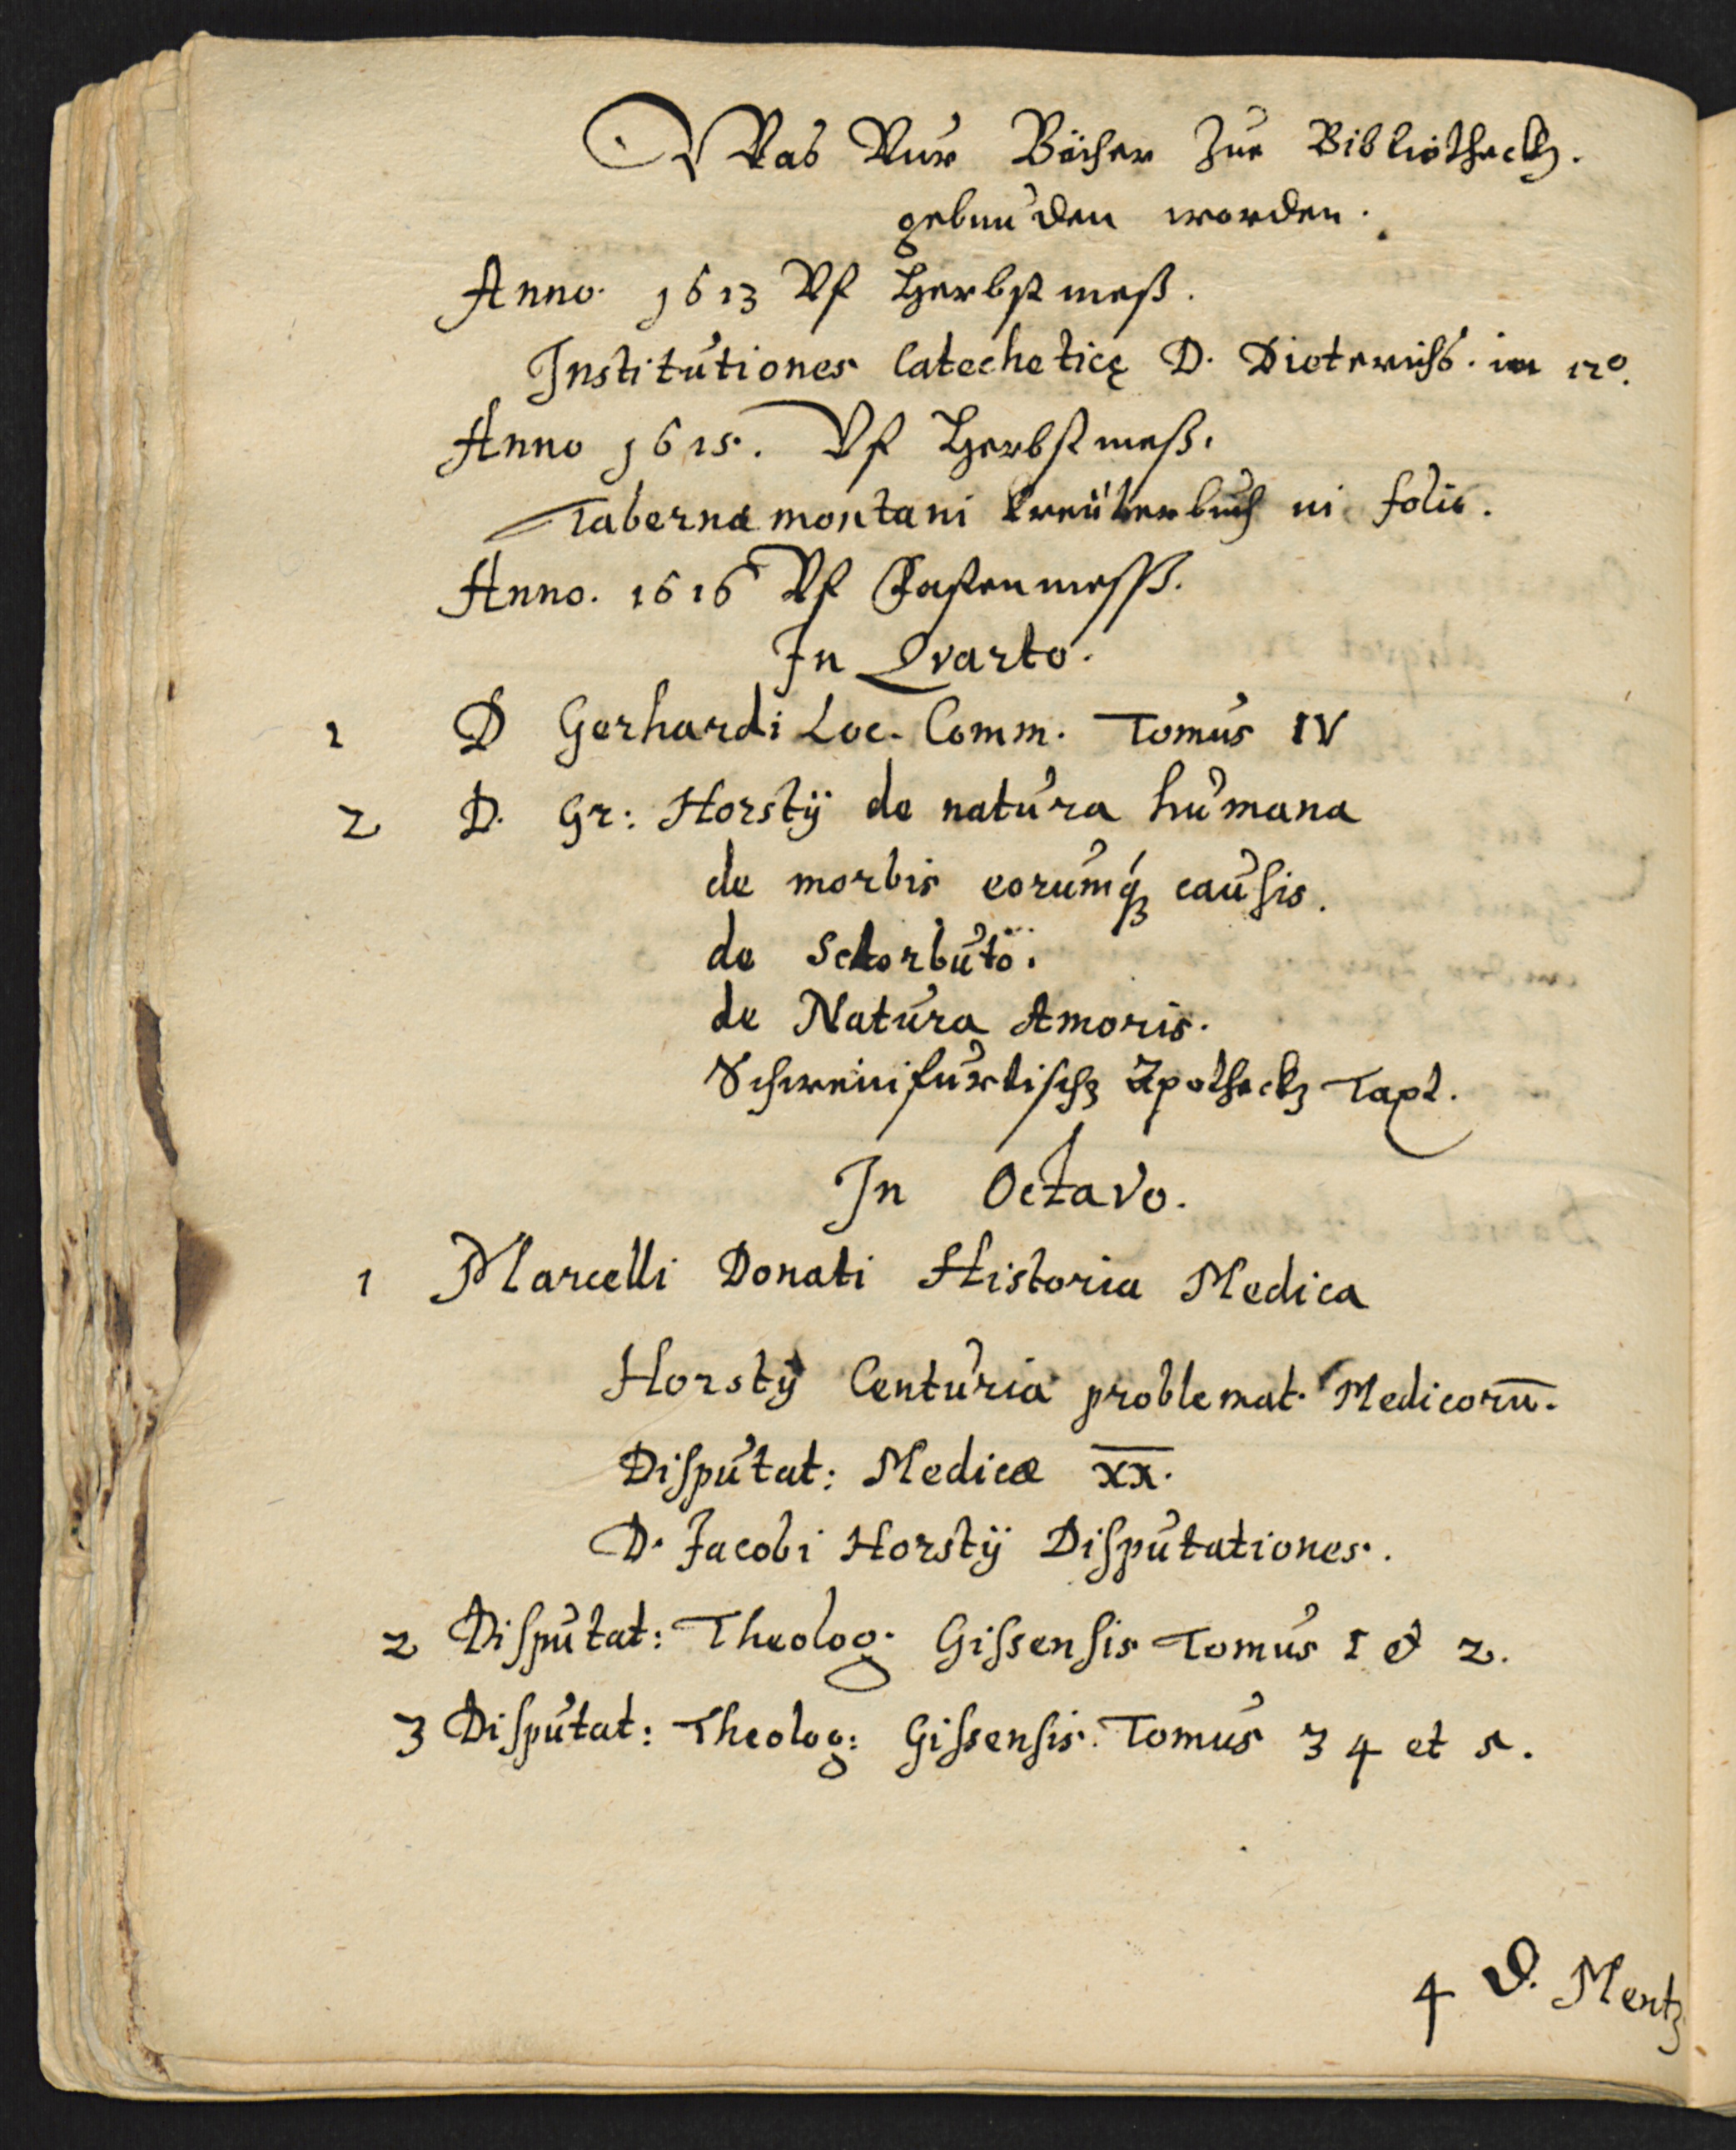 Was Nur Bücher Zur Bibliotheck.
gebunden worden.
Anno. 1613 Vf Herbstmeß.
Institutiones Catecheticę D. Dieterichs. in 12o.
Anno 1615. Vf Herbstmeß.
Tabernæmontani Kreüterbuch in folio.
Anno. 1616 Vf Fastenmesß.
In Qvarto.
1 D Gerhardi Loc. Comm. Tomus IV
2 D. Gr: Horstÿ de natura humana
de morbis eorumq́ꝫ causis.
de Schorbuto.
de Natura Amoris.
Schweinfurtische Apotheck Taxt.
In Octavo.
1 Marcelli Donati Historia Medica
Horstÿ Centuria problemat. Medicorū.
Disputat: Medicæ XX.
D. Jacobi Horstÿ Disputationes.
2 Disputat: Theolog. Gissensis Tomus 1 et 2.
3 Disputat: Theolog: Gissensis. Tomus 3 4 et 5.
4 D. Mentz